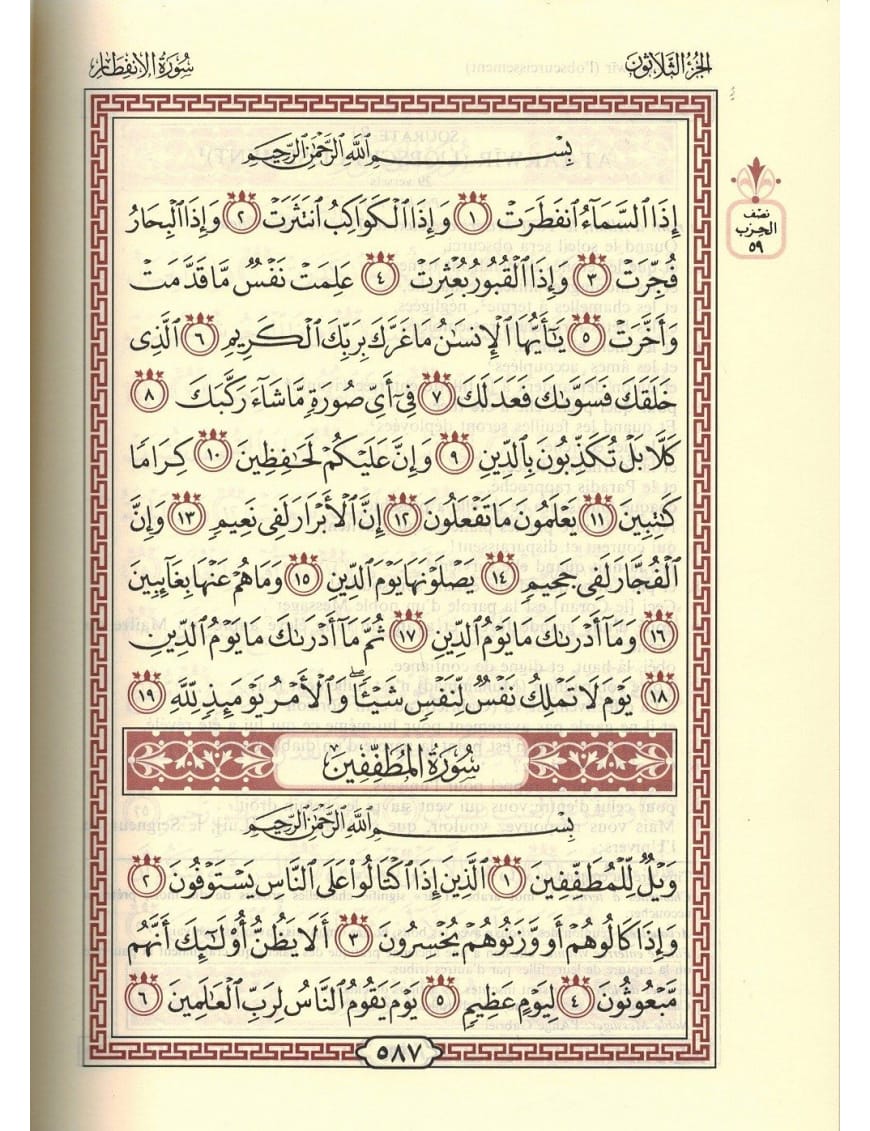 الجزء الثلاثون
سورة الانفطار
بِسْمِ اللَّهِ الرَّحْمَٰنِ الرَّحِيمِ
إِذَا السَّمَاءُ انفَطَرَتْ ١ وَإِذَا الْكَوَاكِبُ انتَثَرَتْ ٢ وَإِذَا الْبِحَارُ
نصف
الحزب
٥٩
فُجِّرَتْ ٣ وَإِذَا الْقُبُورُ بُعْثِرَتْ ٤ عَلِمَتْ نَفْسٌ مَّا قَدَّمَتْ
وَأَخَّرَتْ ٥ يَٰأَيُّهَا الْإِنسَٰنُ مَا غَرَّكَ بِرَبِّكَ الْكَرِيمِ ٦ الَّذِى
خَلَقَكَ فَسَوَّىٰكَ فَعَدَلَكَ ٧ فِىٓ أَىِّ صُورَةٍ مَّا شَآءَ رَكَّبَكَ ٨
كَلَّا بَلْ تُكَذِّبُونَ بِالدِّينِ ٩ وَإِنَّ عَلَيْكُمْ لَحَٰفِظِينَ ١٠ كِرَامًا
كَٰتِبِينَ ١١ يَعْلَمُونَ مَا تَفْعَلُونَ ١٢ إِنَّ الْأَبْرَارَ لَفِى نَعِيمٍ ١٣ وَإِنَّ
الْفُجَّارَ لَفِى جَحِيمٍ ١٤ يَصْلَوْنَهَا يَوْمَ الدِّينِ ١٥ وَمَا هُمْ عَنْهَا بِغَآئِبِينَ
١٦ وَمَآ أَدْرَىٰكَ مَا يَوْمُ الدِّينِ ١٧ ثُمَّ مَآ أَدْرَىٰكَ مَا يَوْمُ الدِّينِ
١٨ يَوْمَ لَا تَمْلِكُ نَفْسٌ لِّنَفْسٍ شَيْـًٔا ۖ وَالْأَمْرُ يَوْمَئِذٍ لِّلَّهِ ١٩
سُورَةُ الْمُطَفِّفِينَ
بِسْمِ اللَّهِ الرَّحْمَٰنِ الرَّحِيمِ
وَيْلٌ لِّلْمُطَفِّفِينَ ١ الَّذِينَ إِذَا اكْتَالُوا عَلَى النَّاسِ يَسْتَوْفُونَ ٢
وَإِذَا كَالُوهُمْ أَو وَّزَنُوهُمْ يُخْسِرُونَ ٣ أَلَا يَظُنُّ أُولَٰٓئِكَ أَنَّهُم
مَّبْعُوثُونَ ٤ لِيَوْمٍ عَظِيمٍ ٥ يَوْمَ يَقُومُ النَّاسُ لِرَبِّ الْعَٰلَمِينَ ٦
٥٨٧